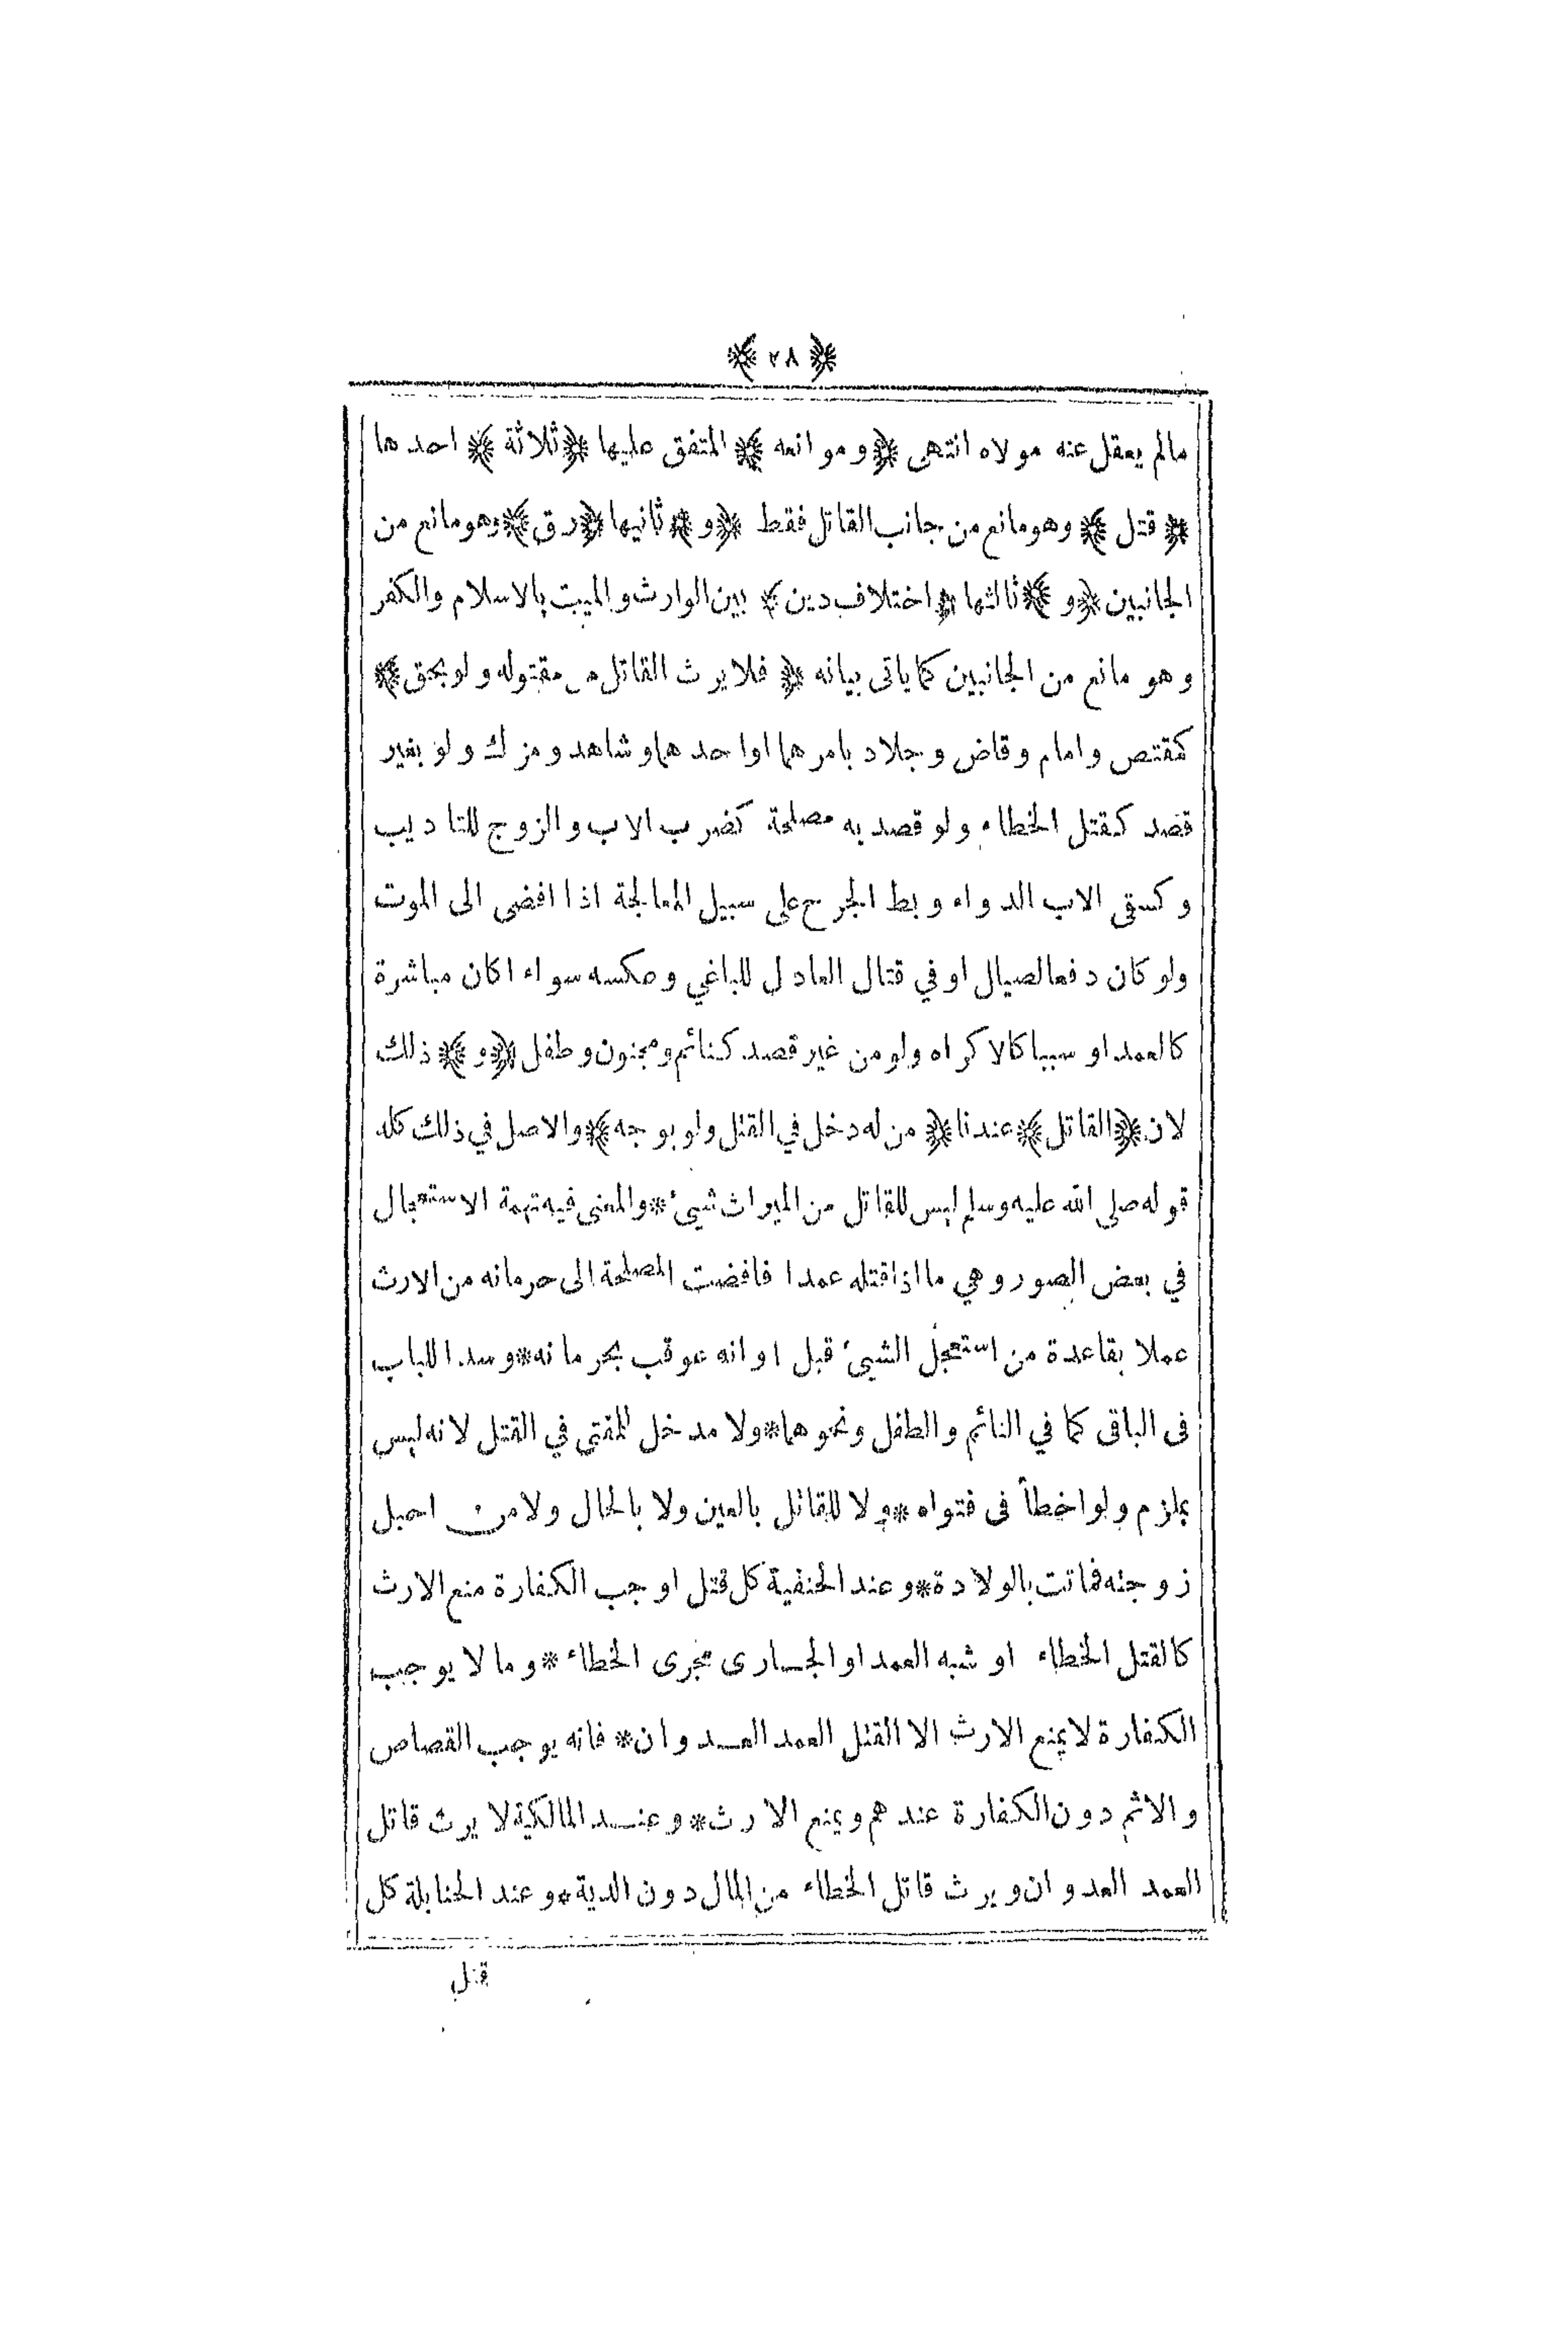 ﴿ ٢٨ ﴾
مالم يعقل عنه مولاه انتهى ﴿ وموانعه ﴾ المتفق عليها ﴿ ثلاثة ﴾ احدها
﴿ قتل ﴾ وهومانع من جانب القاتل فقط ﴿ و ﴾ ثانيها ﴿ رق ﴾ وهومانع من
الجانبين ﴿ و ﴾ ثالثها ﴿ اختلاف دين ﴾ بين الوارث والميت بالاسلام والكفر
وهو مانع من الجانبين كماياتى بيانه ﴿ فلايرث القاتل من مقتوله ولوبحق ﴾
كمقتص وامام وقاض وجلاد بامرهما اواحدهما وشاهد ومزك ولو بغير
قصد كقتل الخطاء ولو قصد به مصلحة كضرب الاب والزوج للتاديب
وكسقى الاب الدواء وبط الجرح على سبيل المعالجة اذا افضى الى الموت
ولوكان دفعالصيال اوفي قتال العادل للباغي وعكسه سواء اكان مباشرة
كالعمد او سببا كالاكراه ولو من غير قصد كنائم ومجنون وطفل ﴿ و ﴾ ذلك
لان ﴿ القاتل ﴾ عندنا ﴿ من له دخل في القتل ولو بوجه ﴾ والاصل في ذلك كله
قوله صلى الله عليه وسلم ليس للقاتل من الميراث شيئ * والمعنى فيه تهمة الاستعجال
في بعض الصور وهي ما اذاقتله عمدا فافضت المصلحة الى حرمانه من الارث
عملا بقاعدة من استعجل الشيئ قبل اوانه عوقب بحرمانه * وسدا للباب
فى الباقى كما في النائم والطفل ونحوهما * ولا مدخل للمفتى في القتل لانه ليس
بملزم ولواخطأ فى فتواه * ولا للقاتل بالعين ولا بالحال ولا من احبل
زوجته فماتت بالولادة * وعند الحنفية كل قتل اوجب الكفارة منع الارث
كالقتل الخطاء او شبه العمد او الجارى مجرى الخطاء * وما لا يوجب
الكفارة لايمنع الارث الا القتل العمد العدوان * فانه يوجب القصاص
والاثم دون الكفارة عندهم ويمنع الارث * وعند المالكية لا يرث قاتل
العمد العدوان ويرث قاتل الخطاء من المال دون الدية * وعند الحنابلة كل
قتل